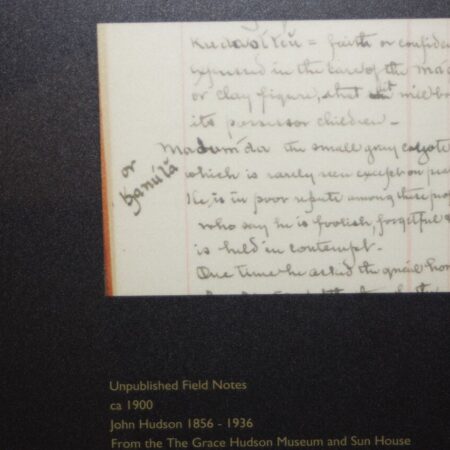 Kudasíteŭ = faith or confide
expressed in the care of the
or clay figure, that it will
its possessor children -
or
Ganúlă
Madum'da the small gray coyote
which is rarely seen except on
He, is in poor repute among these
who say he is foolish, forgetful
is held in contempt -
One time he asked the quail how
Unpublished Field Notes
ca 1900
John Hudson 1856 - 1936
From the The Grace Hudson Museum and Sun House